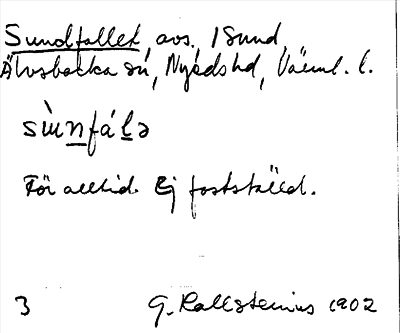 Sundfallet, avs., I Sund,
Älvsbacka sn, Nyeds hd, Värml. l.
sùnfáLə
För alltid. Ej fastställd.
3 G. Kallstenius 1902